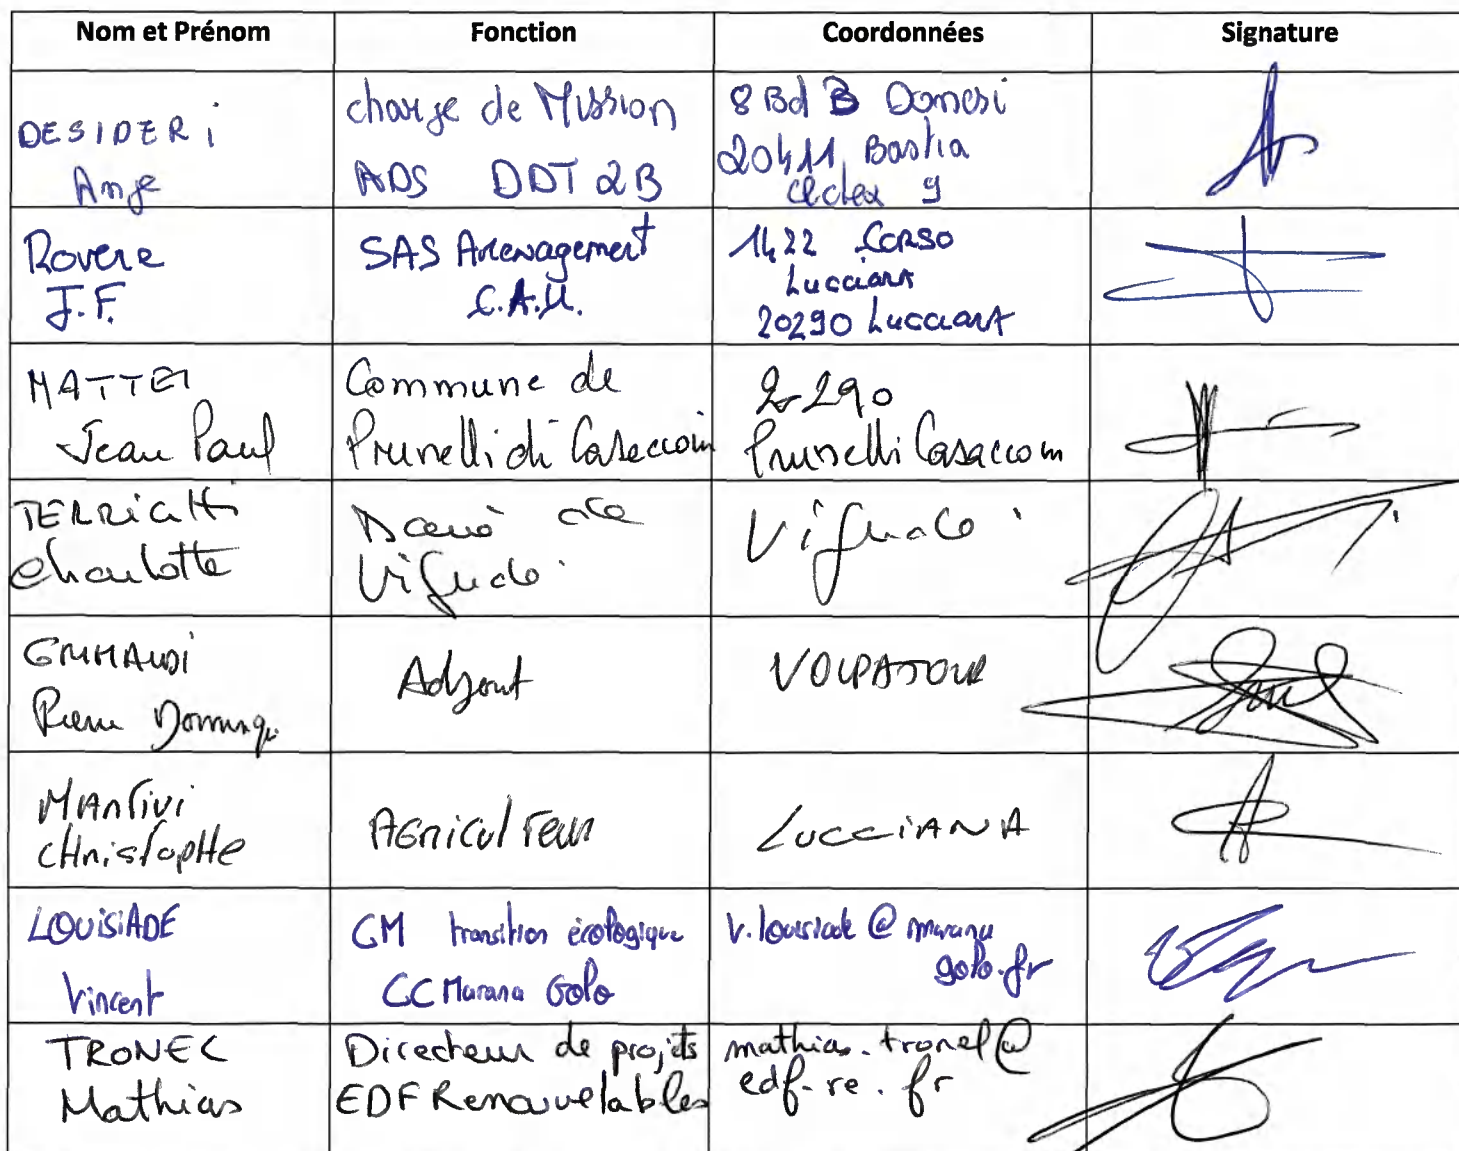 Nom et Prénom Fonction Coordonnées Signature
DESIDERI
Ange
charge de Mission
ADS DDT 2B
8 Bd B Domesi
20411 Bastia
Cedex 9
Rovere
J.F.
SAS Amenagement
C.A.U.
1422 Corso
Lucciana
20290 Lucciana
MATTEI
Jean Paul
Commune de
Prunelli di Casaccoin
20290
Prunelli Casaccom
Charlotte
Vignale
Vignale
GRIMALDI
Pierre Dominique
Adjoint
VOLPAJOLA
MAnfivi
CHristopHe
AGriculTeur
LUCCiANA
LOUiSiADE
Vincent
CM transition écologique
CC Marana Golo
v.louisiade@marana
golo.fr
TRONEL
Mathias
Directeur de projets
EDF Renouvelables
mathias.tronel@
edf-re.fr